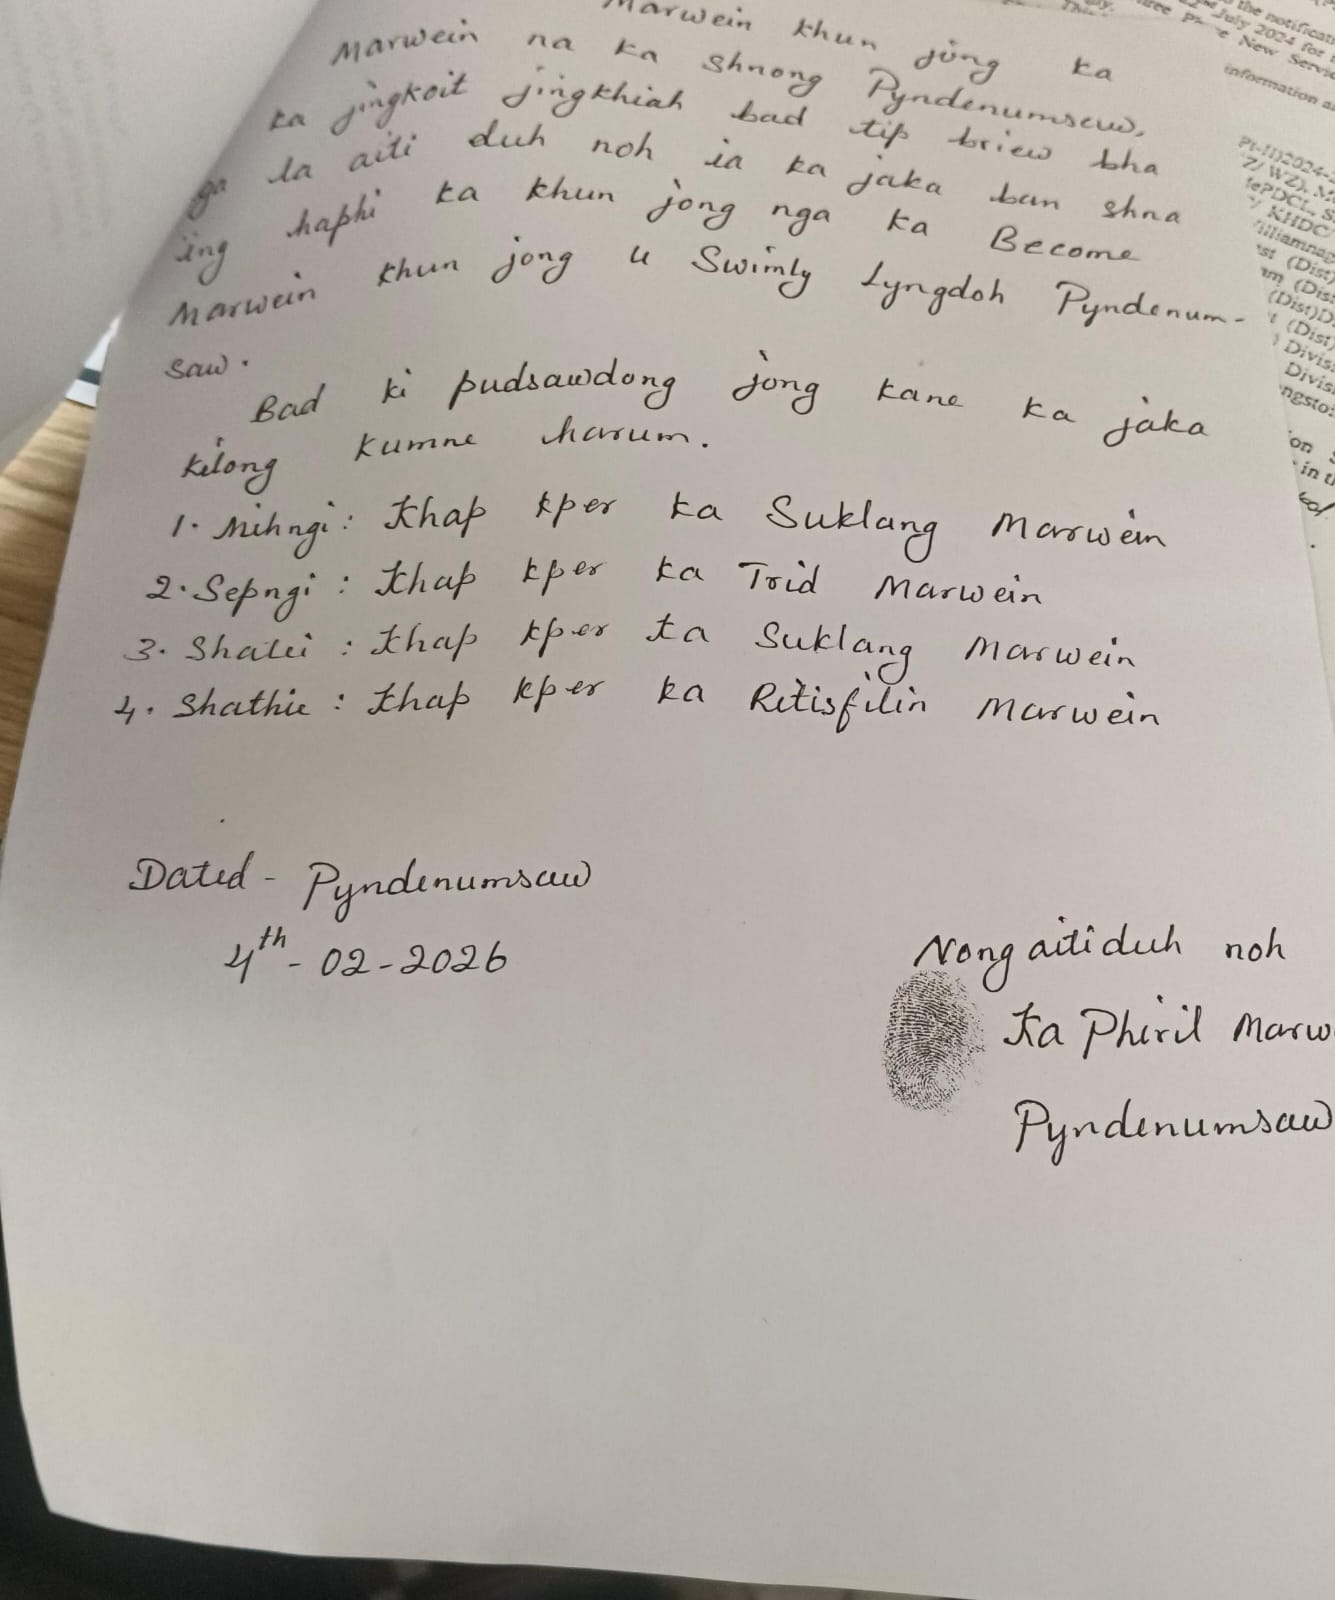 Marwein khun jong ka
Marwein na ka shnong Pyndenumsaw,
ka jingkoit jingkhiah bad tip briew bha
nga la aiti duh noh ia ka jaka ban shna
ing haphi ka khun jong nga ka Become
Marwein khun jong u Swimly Lyngdoh Pyndenum-
saw.
Bad ki pudsawdong jong kane ka jaka
kilong kumne harum.
1. Mihngi: Khap kper ka Suklang Marwein
2. Sepngi: Khap kper ka Trid Marwein
3. Shatei: Khap kper ka Suklang Marwein
4. Shathie: Khap kper ka Ritisfilin Marwein
Dated - Pyndenumsaw
4th - 02-2026
Nongaitiduh noh
Ka Phiril Marw
Pyndenumsaw
the notificati
July 2024 for
New Servic
information a
PI-II)2024-
7/ WZ). M
KHDC
illiamnag
st (Dist)
(Dist)D
(Dist)
Divis
Divis
ngsto
on
in t